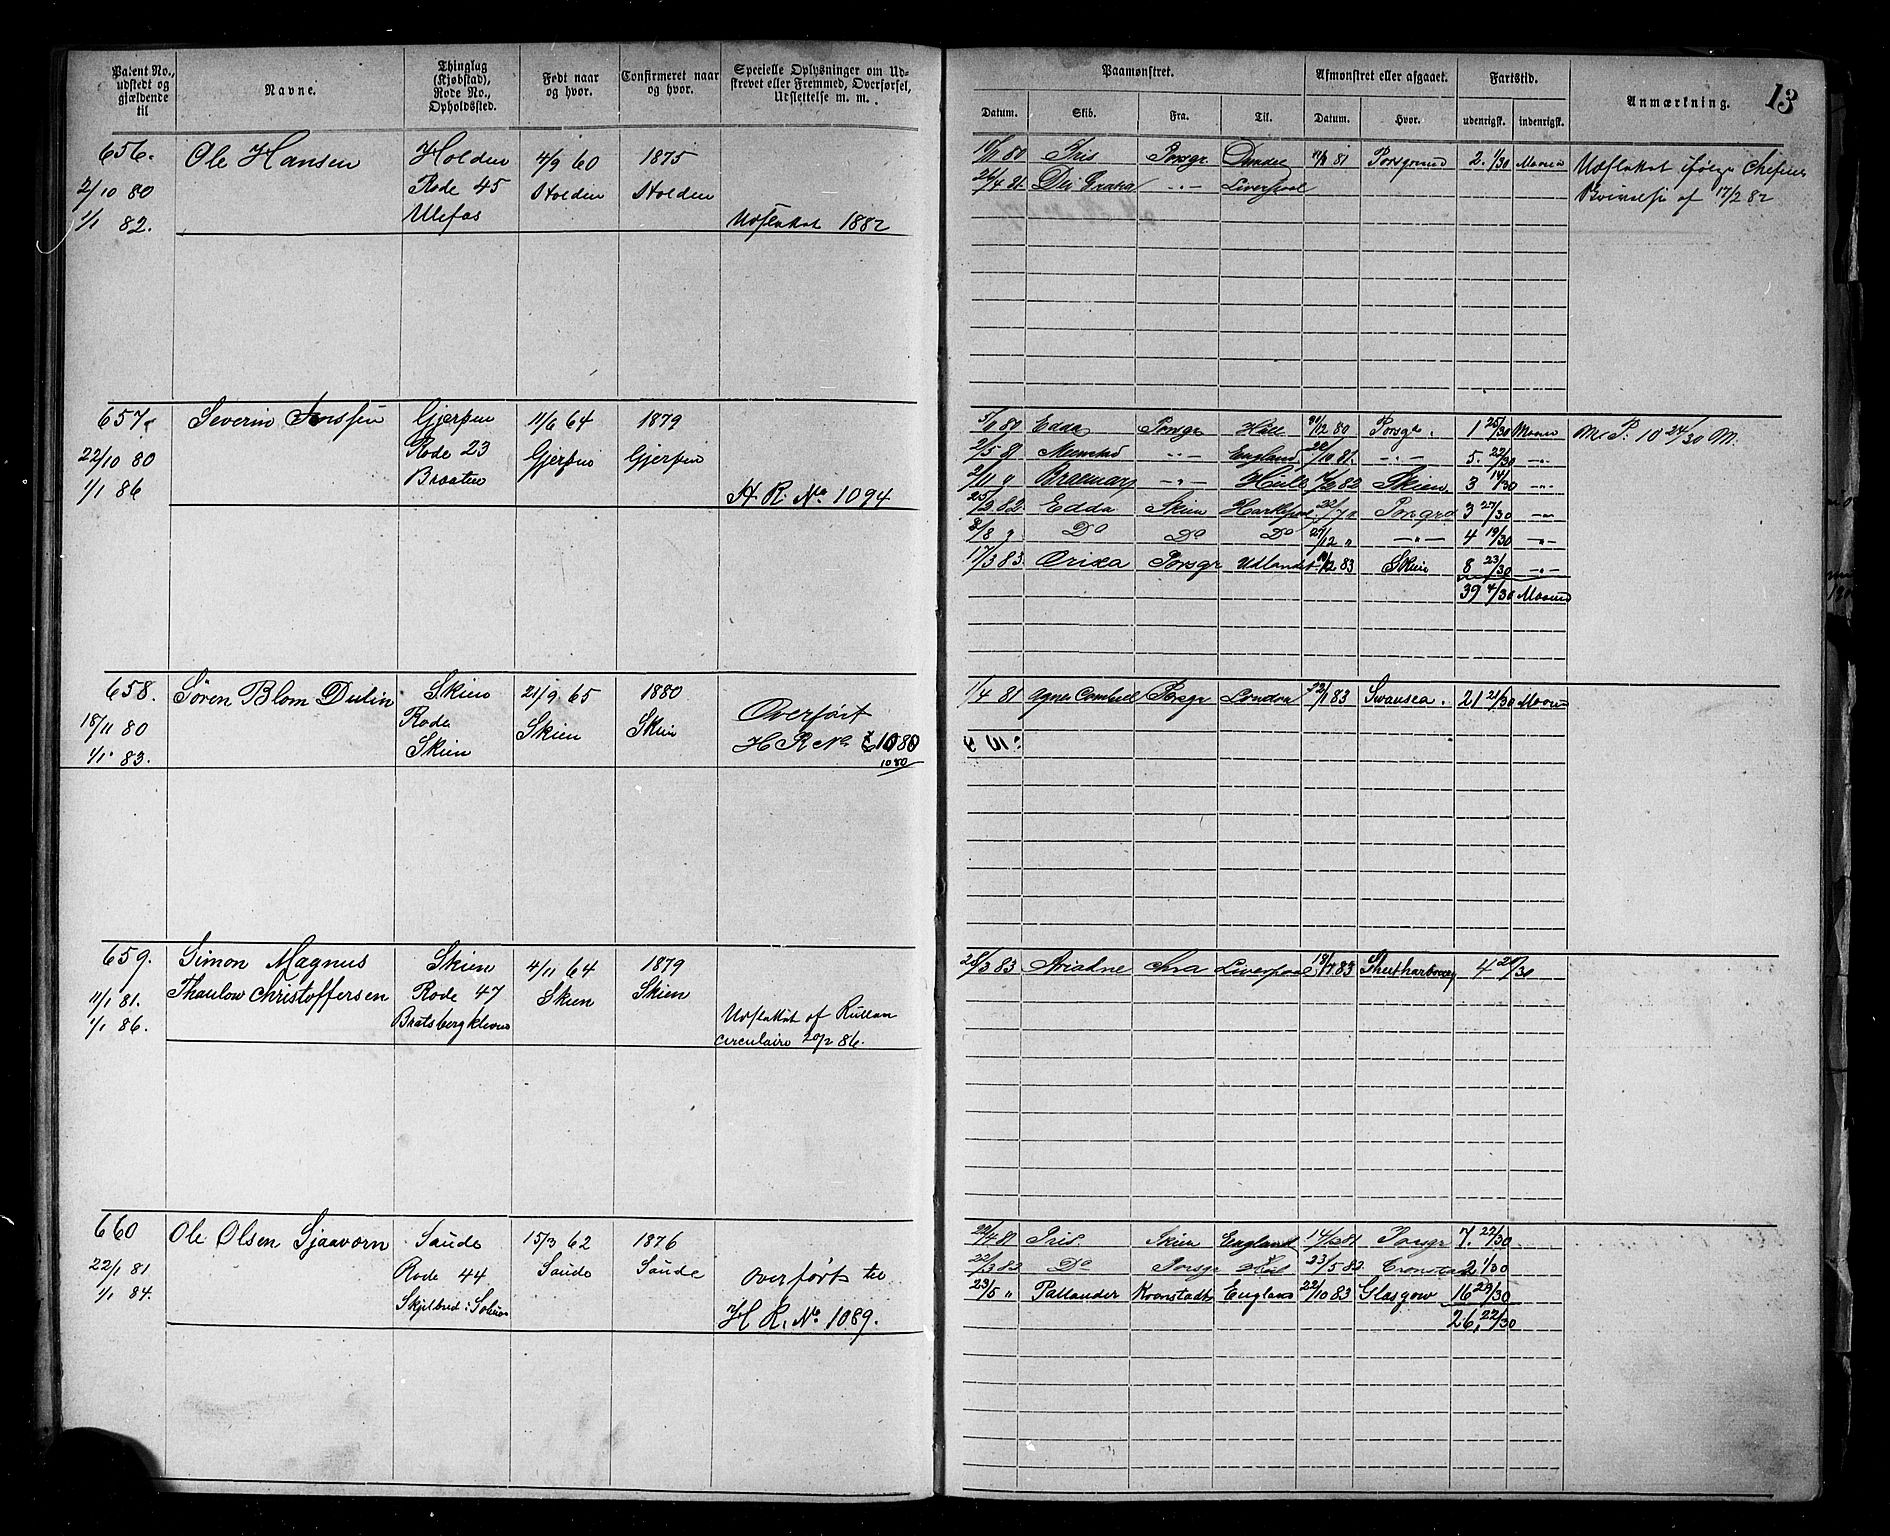 Patent No., udstedt og gjældende til
Navne.
Thinglug (Kjøbstad), Rode No., Opholdssted.
Født naar og hvor.
Confirmeret naar og hvor.
Specielle Oplysninger om Udskrevet eller Fremmed, Overførsel, Udslettelse m. m.
Paamønstret.
Afmønstret eller afgaaet.
Fartstid.
Anmærkning.
13
Datum. Skib. Fra. Til. Datum. Hvor. udenrigsk. indenrigsk.
656. Ole Hansen Holden 4/9 60 1875
2/10 80 Rode 45 Holden Holden
1/1 82. Ulefos Udslettet 1882
80 Iris Porsgr Dundee 81 Porsgrund 2. 1/30 Maaned
26/4 81. Dei Gratia -"- Liverpool
Udslettet ifølge Chefens
af 17/2 82
657. Severin Gjerpen 11/6 64 1879
22/10 80 Rode 23 Gjerpen Gjerpen
1/1 86 Braaten H. R. No 1094
80 Edda Porsgr Hull 12 80 Porsgr. 1 25/30 Maaned 10 24/30 M.
2/5 81 -"- England 10 81. -"- 5. 22/30 -"-
2/11 " Braemar -"- Hull 82 Skien 3 14/30 -"-
25/3 82 Edda Skien 3 27/30 -"-
/8 " Do Do Do /12 " -"- 4 19/30 -"-
17/3 83. Orixa Porsgr Udlandet 12 83 Skien 8 23/30 -"-
39 4/30 Maaned
658. Sören Blom Dulin Skien 21/9 65 1880
18/11 80 Rode Skien Skien Overført
1/1 83. Skien H R No 1080
1080
1/4 81 Agnes Porsgr London 83 Swansea. 21 21/30 Maaned
659. Simon Magnus Skien 4/11 64 1879
11/1 81. Thaulow Christoffersen Rode 47 Skien Skien
1/1 86. Bratsbergkleven Udslettet af Rullen
circulaire 20/2 86.
/3 83 Ariadne Liverpool 18/7 83 4 /30
660 Ole Olsen Sjaavorn Saude 15/3 62 1876
22/1 81 Rode 44 Saude Saude Overført til
1/1 84. H R. No 1089.
22/4 81 Iris Skien England 14/12 81 Porsgr 7. 22/30
22/3 82 Do Porsgr Hull 23/5 82 Cronstadt 2 1/30
23/5 " Pallander Kronstadt England 22/10 83 Glasgow 16 29/30
26, 22/30